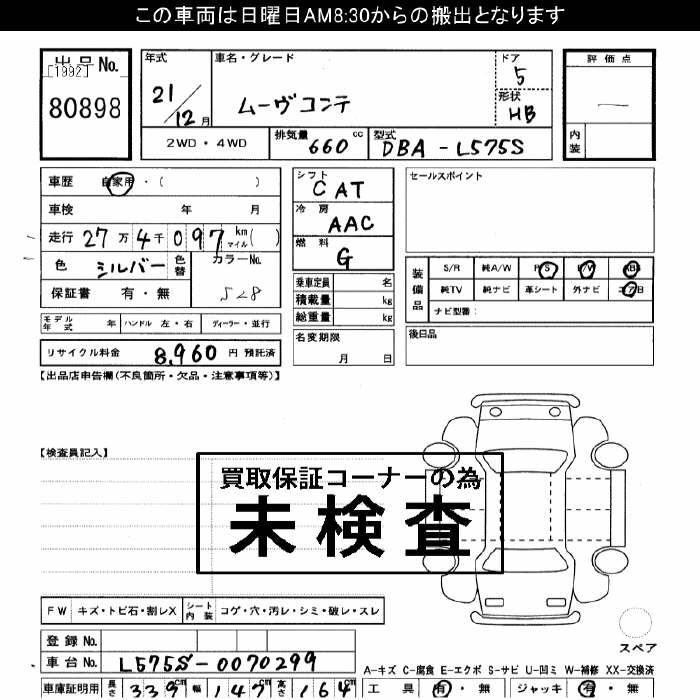 この車両は日曜日AM8:30からの搬出となります
出品No.
[1992]
80898
年式
21/12月
車名・グレード
ムーヴコンテ
ドア
5
形状
HB
評価点
内装
2WD・4WD
排気量
660 cc
型式
DBA-L575S
車歴 自家用・( )
車検 年 月
走行 27万4千097 km マイル( )
色 シルバー 色替 カラーNo.
S28
保証書 有・無
シフト
CAT
冷房
AAC
燃料
G
乗車定員 名
積載量 kg
総重量 kg
セールスポイント
装備品
S/R 純A/W P/S P/W ABS
純TV 純ナビ 革シート 外ナビ エアB
ナビ型番:
モデル年式 年 ハンドル 左・右 ディーラー・並行
リサイクル料金 8,960 円 預託済
名変期限
月 日
後日品
【出品店申告欄(不良箇所・欠品・注意事項等)】
【検査員記入】
買取保証コーナーの為
未検査
FW キズ・トビ石・割レX シート内装 コゲ・穴・汚レ・シミ・破レ・スレ
スペア
登録No.
車台No. L575S-0070299
A-キズ C-腐食 E-エクボ S-サビ U-凹ミ W-補修 XX-交換済
車庫証明用 長さ 339cm 幅 147cm 高さ 164cm
工具 有・無 ジャッキ 有・無